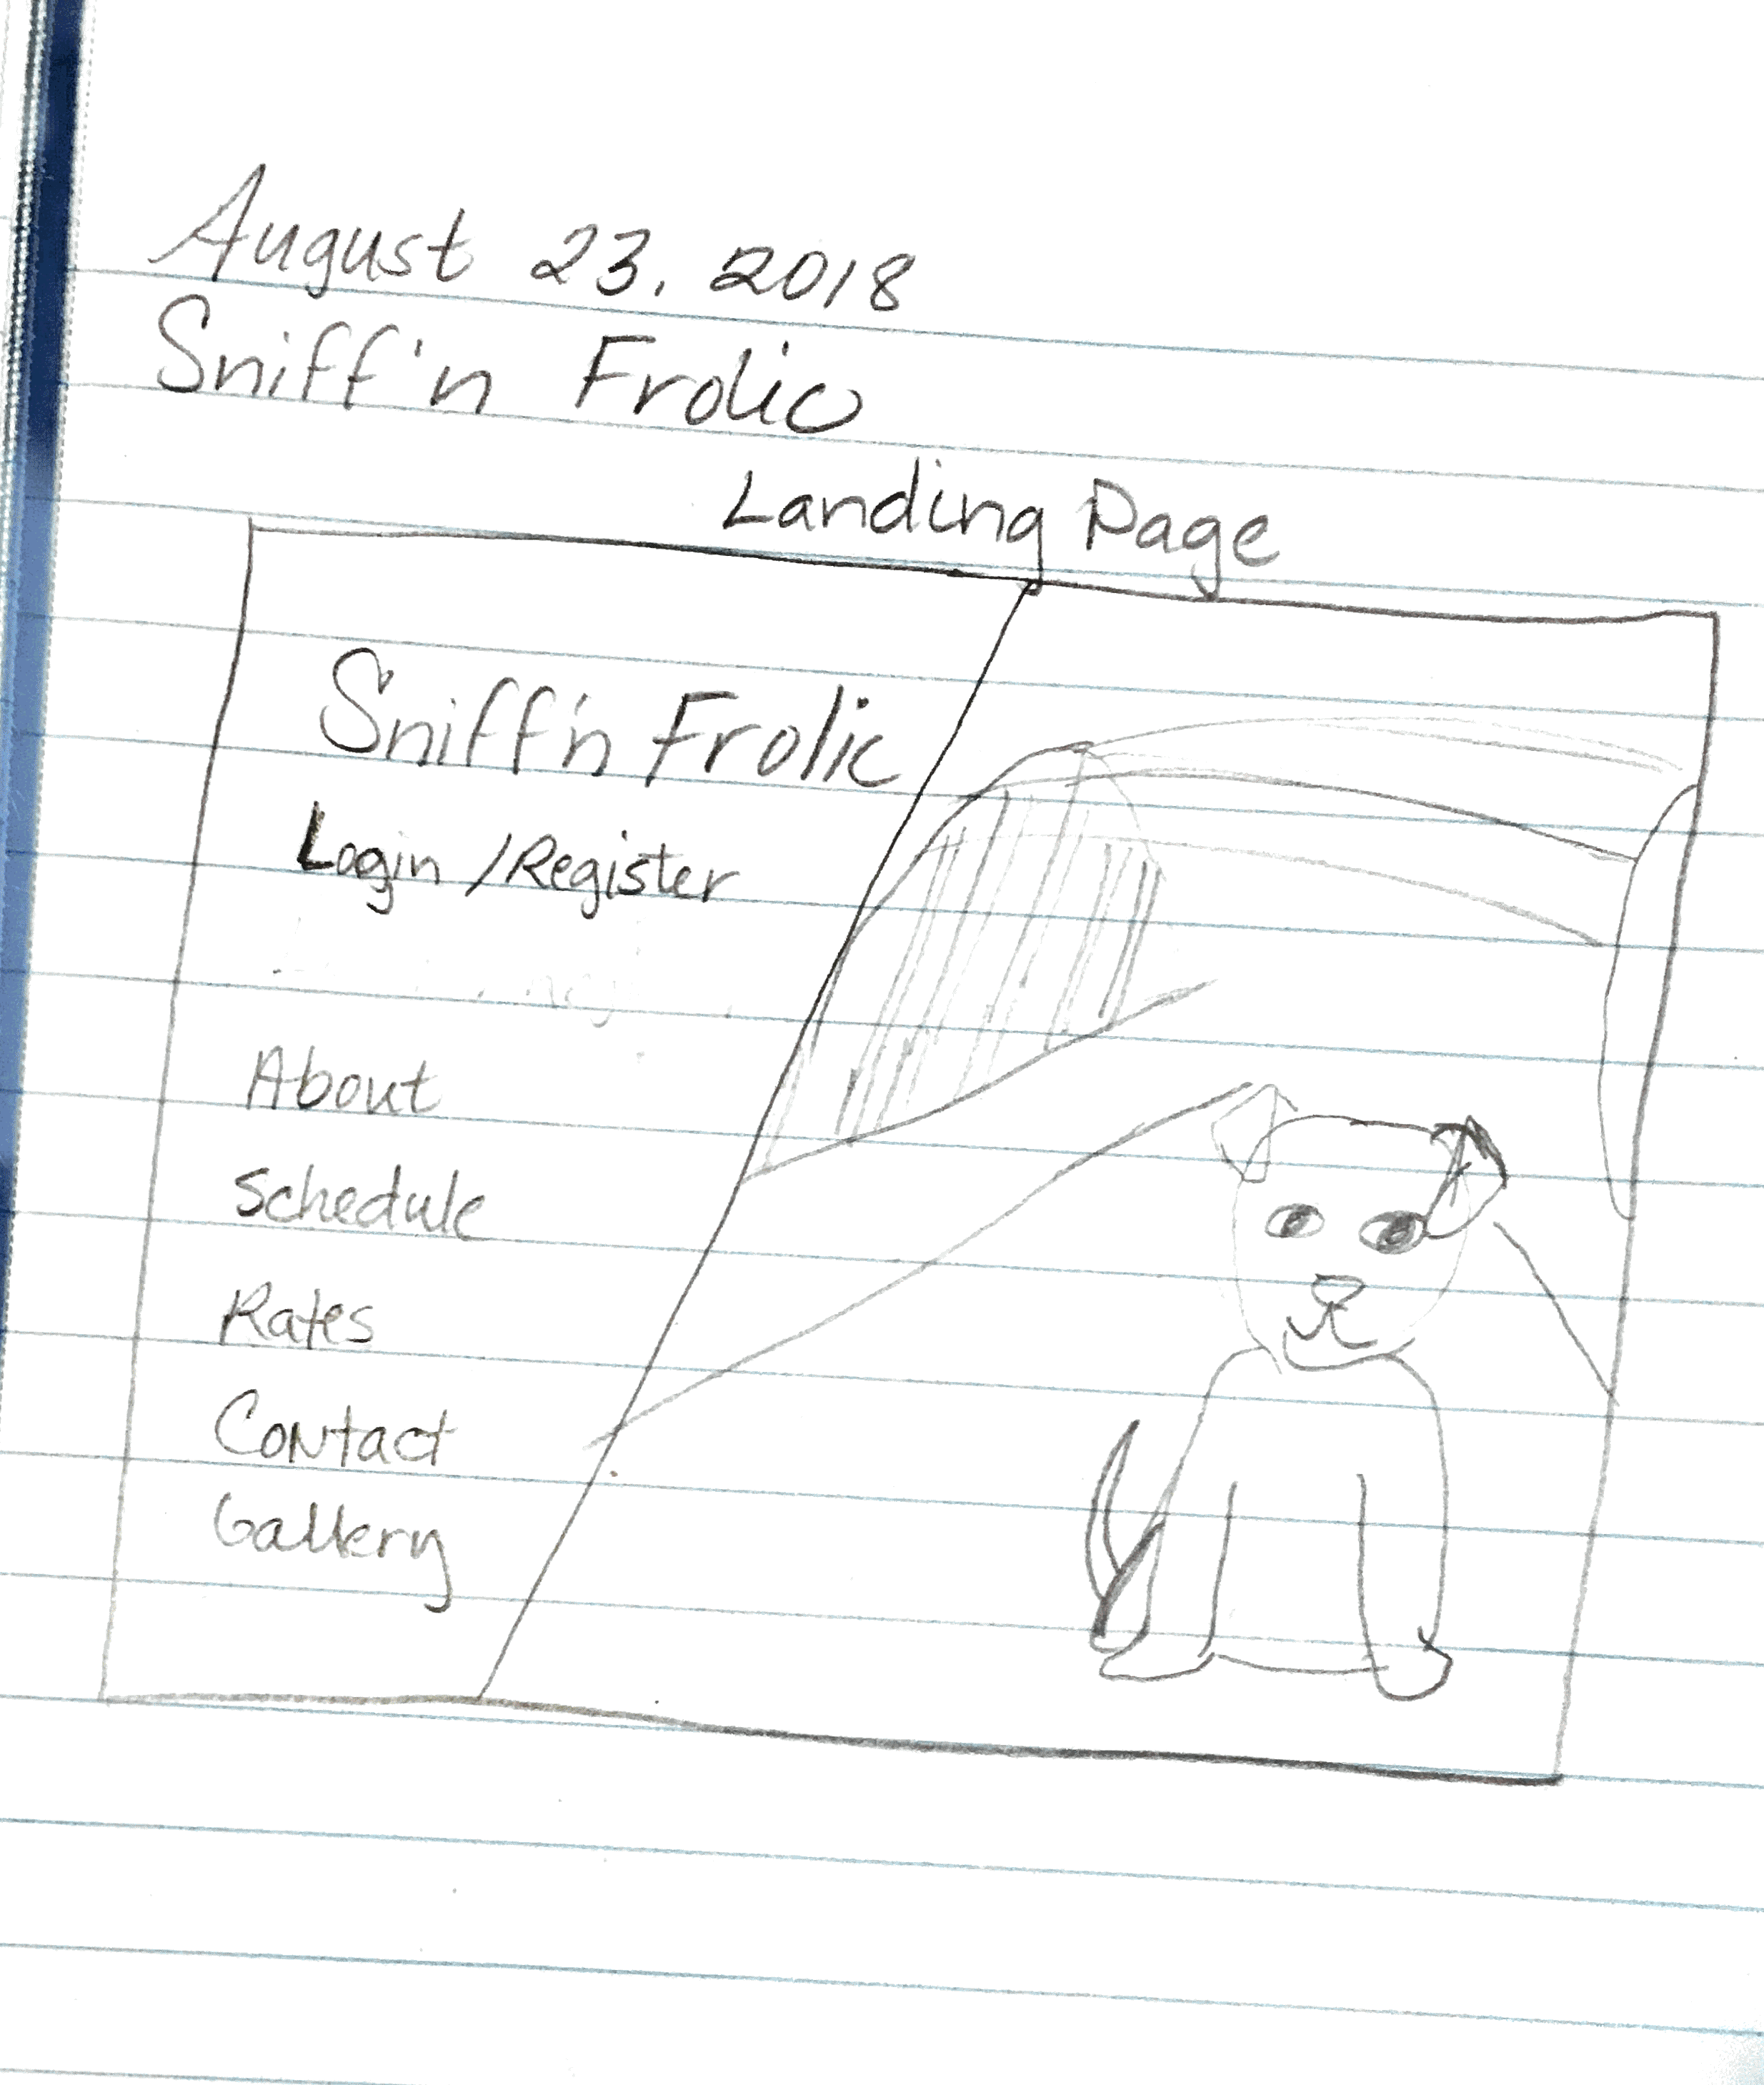 August 23, 2018
Sniff'n Frolic
Landing Page
Sniff'n Frolic
Login / Register
About
Schedule
Rates
Contact
Gallery